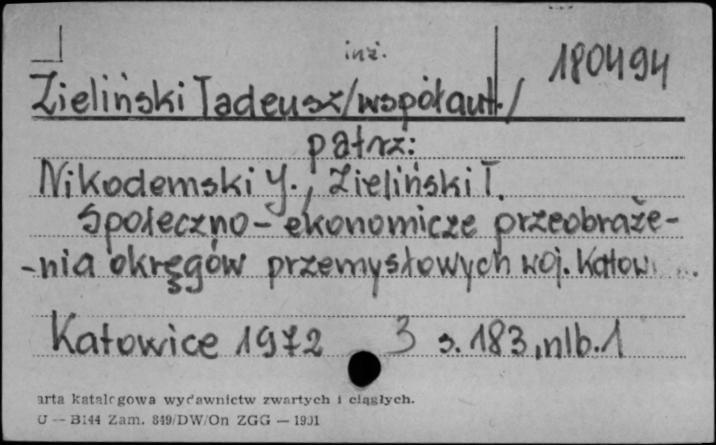 inż.
180494
Zieliński Tadeusz/współaut./
patrz:
Nikodemski Y., Zieliński T.
Społeczno-ekonomicze przeobraże-
-nia okręgów przemysłowych woj. Katow...
Katowice 1972 3 s. 183, nlb. 1
arta katalogowa wydawnictw zwartych i ciągłych.
U — B144 Zam. 849/DW/On ZGG — 1991